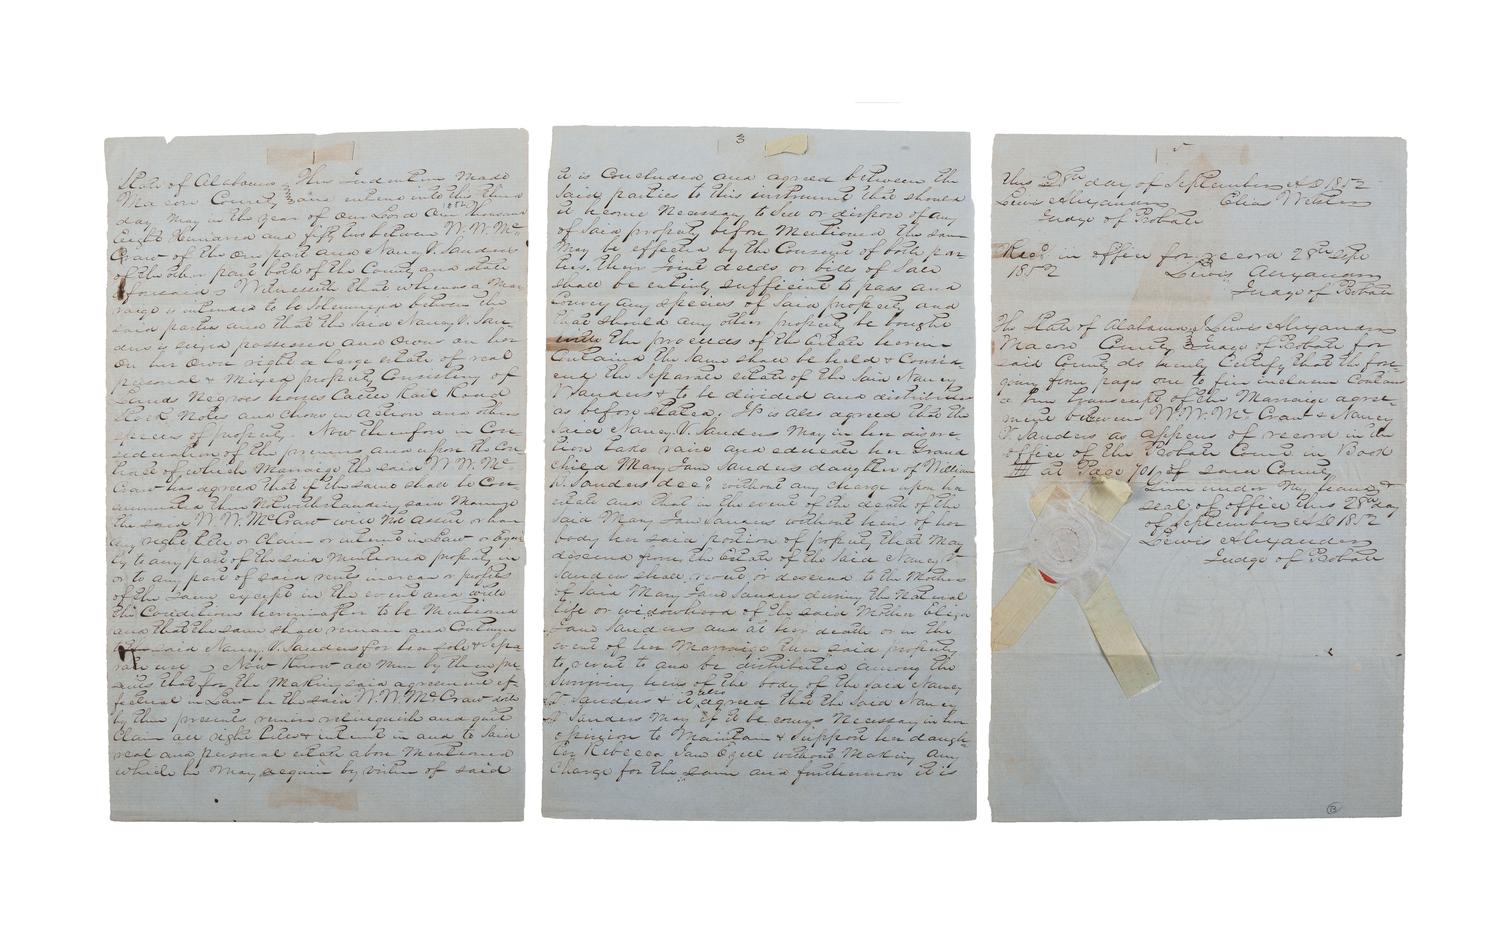 State of Alabama } This Indenture made
Macon County } and entered into this third
1852
day May in the year of our Lord One thousand
Eight Hundred and fifty two between W. W. Mc-
Craw of the one part and Nancy V. Sanders
of the other part both of the County and State
aforesaid Witnesseth that whereas a mar-
riage is intended to be Solemnized between the
said parties and that the said Nancy V. San-
ders is seized possessed and owns in her
own right a large estate of real
personal & mixed property Consisting of
Lands Negroes horses Cattle Rail Road
Stock Notes and chose in action and other
species of property. Now therefore in Con-
sideration of the premises and upon the Con-
tract of which Marriage the said W. W. Mc-
Craw has agreed that if the same shall be Con-
summated then Notwithstanding said Marriage
the said W. W. McCraw will not assert or have
any right title or Claim or interest in Law or Equi
ty to any part of the said Mentioned property or
or to any part of said rents increase or profits
of the same except in the event and with
the Conditions hereinafter to be Mentioned
and that the same shall remain and Continue
said Nancy V. Sanders for her sole & Sepa-
rate use Now Know all Men by these pre-
sents that for the Making said agreement ef-
fectual in Law he the said W. W. McCraw doth
by these presents remise relinquish and quit
Claim all right title & interest in and to said
real and personal estate above Mentioned
which he may acquire by virtue of said
3
it is Concluded and agreed between the
said parties to this instrument that should
it become Necessary to sell or dispose of any
of said property before Mentioned the same
may be effected by the Consent of both par-
ties. Their joint deeds or bills of Sale
shall be entirely sufficient to pass and
Convey any species of said property and
that should any other property be bought
with the proceeds of the Estate herein
Contained the same shall be held & Consid-
ered the Separate estate of the said Nancy
V Sanders & to be divided and distributed
as before stated. It is also agreed that the
said Nancy V. Sanders may in her discre-
tion take raise and educate her Grand
child Mary Jane Sanders daughter of William
B. Sanders decd. without any charge upon her
estate and that in the event of the death of the
said Mary Jane Sanders without heirs of her
body her said portion of property that May
descend from the Estate of the said Nancy V
Sanders shall revert or descend to the Mother
of said Mary Jane Sanders during the natural
life or widowhood of the said Mother Eliza
Jane Sanders and at her death or in the
event of her Marriage then said property
to revert to and be distributed among the
surviving heirs of the body of the said Nancy
V. Sanders & it also agreed that the said Nancy
V Sanders May if it be comes Necessary in her
opinion to Maintain & Support her daugh-
ter Rebecca Jane Ezell without Making any
Charge for the same and furthermore it is
5
this 28th day of September AD 1852
Lewis Alexander Elias Webster
Judge of Probate
Recd. in office for record 28th Sept
1852 Lewis Alexander
Judge of Probate
The State of Alabama } I Lewis Alexander
Macon County } Judge of Probate for
said County do hereby Certify that the fore
going from pages one to five inclusive Contains
a true transcript of the Marriage agree-
ment between W. W. McCraw & Nancy
V. Sanders as appears of record in the
office of the Probate Court in Book
at Page 701 of said County
Given under My hand &
seal of office this 28th day
of September AD 1852
Lewis Alexander
Judge of Probate